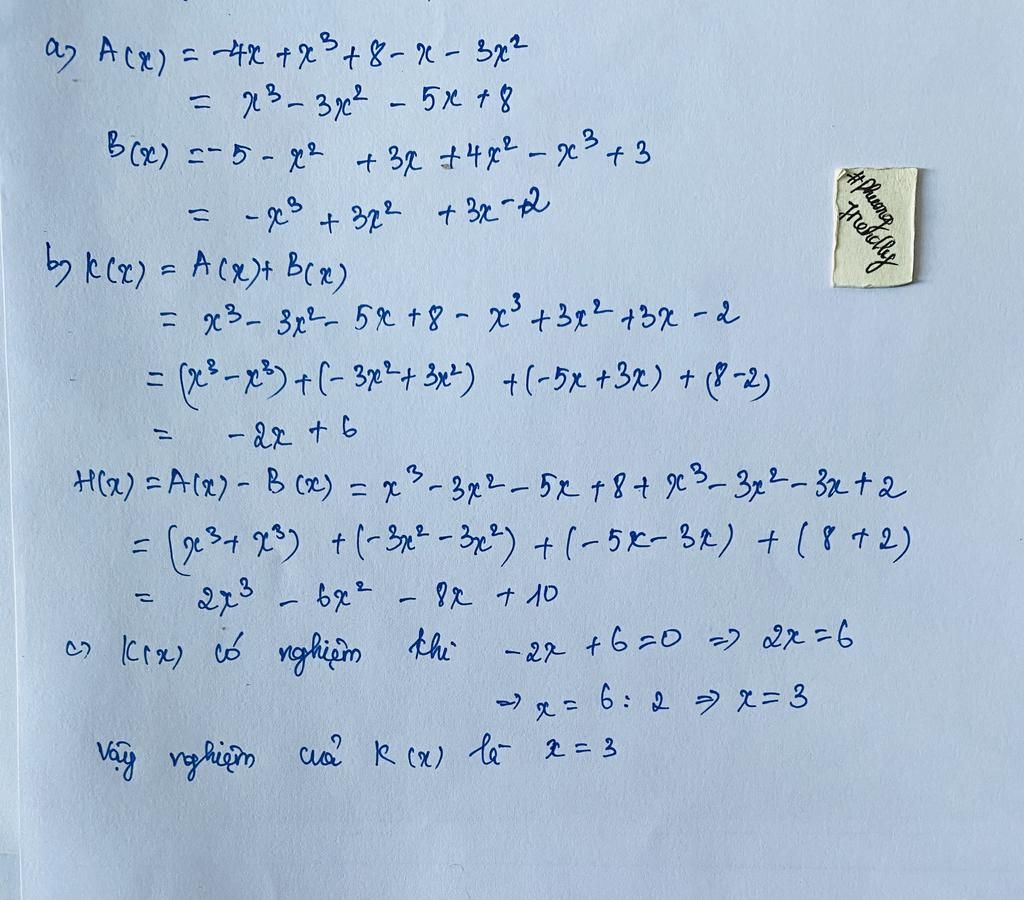 a) A(x) = -4x + x³ + 8 - x - 3x²
= x³ - 3x² - 5x + 8
B(x) = -5 - x² + 3x + 4x² - x³ + 3
= -x³ + 3x² + 3x - 2
b) K(x) = A(x) + B(x)
= x³ - 3x² - 5x + 8 - x³ + 3x² + 3x - 2
= (x³ - x³) + (-3x² + 3x²) + (-5x + 3x) + (8 - 2)
= -2x + 6
H(x) = A(x) - B(x) = x³ - 3x² - 5x + 8 + x³ - 3x² - 3x + 2
= (x³ + x³) + (-3x² - 3x²) + (-5x - 3x) + (8 + 2)
= 2x³ - 6x² - 8x + 10
c) K(x) có nghiệm khi -2x + 6 = 0 => 2x = 6
=> x = 6 : 2 => x = 3
Vậy nghiệm của K(x) là x = 3
#Phuong